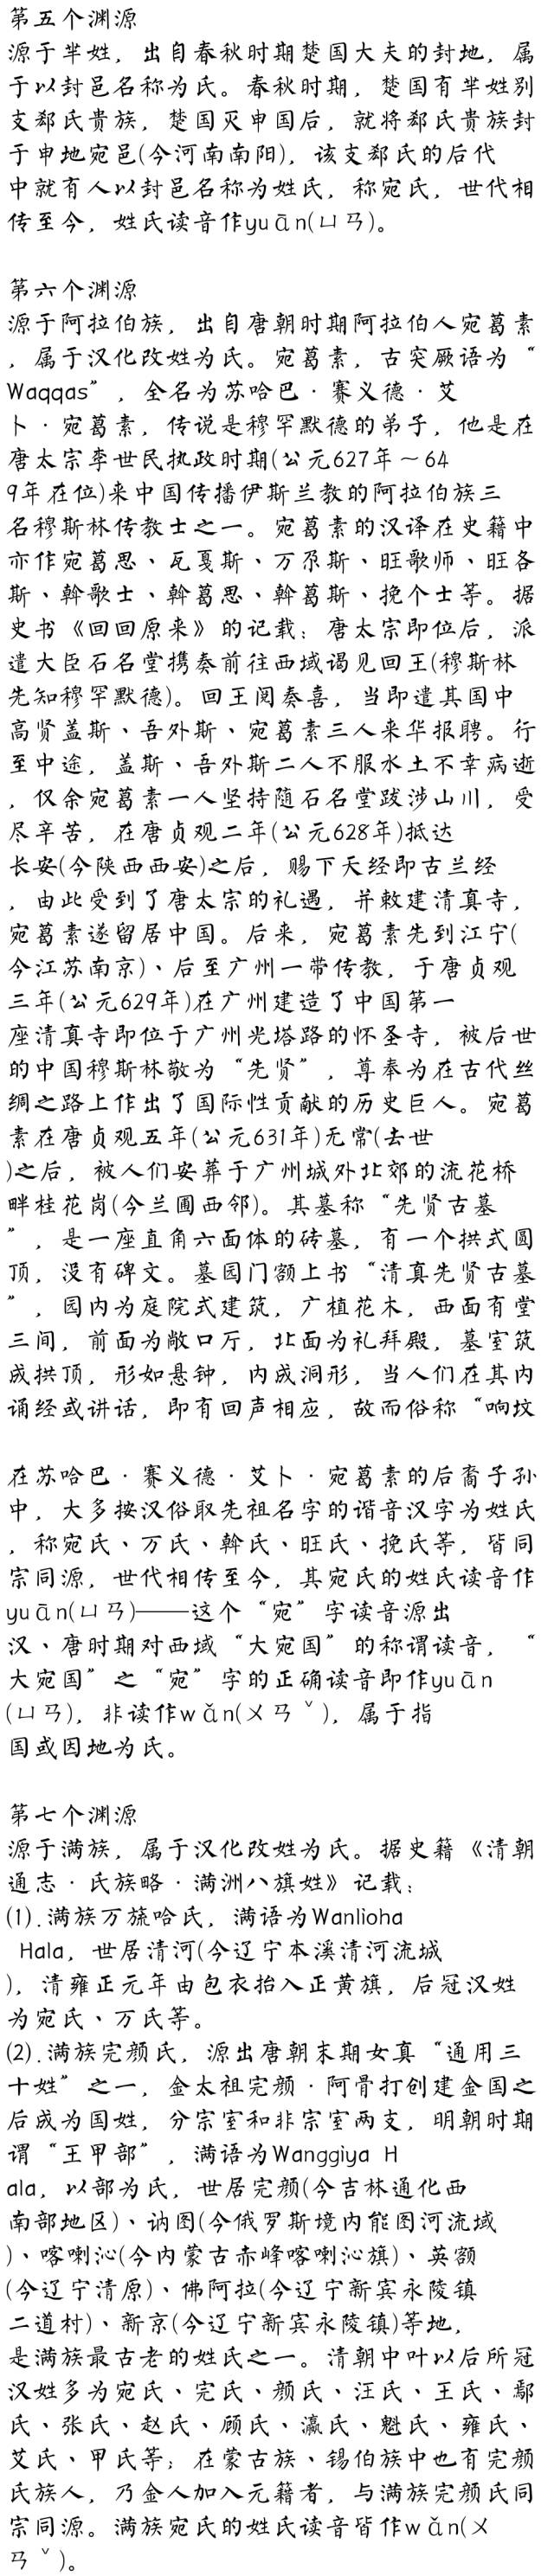 第五个渊源
源于芈姓，出自春秋时期楚国大夫的封地，属
于以封邑名称为氏。春秋时期，楚国有芈姓别
支郄氏贵族，楚国灭申国后，就将郄氏贵族封
于申地宛邑(今河南南阳)，该支郄氏的后代
中就有人以封邑名称为姓氏，称宛氏，世代相
传至今，姓氏读音作yuān(ㄩㄢ)。
第六个渊源
源于阿拉伯族，出自唐朝时期阿拉伯人宛葛素
，属于汉化改姓为氏。宛葛素，古突厥语为“
Waqqas”，全名为苏哈巴·赛义德·艾
卜·宛葛素，传说是穆罕默德的弟子，他是在
唐太宗李世民执政时期(公元627年～64
9年在位)来中国传播伊斯兰教的阿拉伯族三
名穆斯林传教士之一。宛葛素的汉译在史籍中
亦作宛葛思、瓦戛斯、万尕斯、旺歌师、旺各
斯、斡歌士、斡葛思、斡葛斯、挽个士等。据
史书《回回原来》的记载：唐太宗即位后，派
遣大臣石名堂携奏前往西域谒见回王(穆斯林
先知穆罕默德)。回王阅奏喜，当即遣其国中
高贤盖斯、吾外斯、宛葛素三人来华报聘。行
至中途，盖斯、吾外斯二人不服水土不幸病逝
，仅余宛葛素一人坚持随石名堂跋涉山川，受
尽辛苦，在唐贞观二年(公元628年)抵达
长安(今陕西西安)之后，赐下天经即古兰经
，由此受到了唐太宗的礼遇，并敕建清真寺，
宛葛素遂留居中国。后来，宛葛素先到江宁(
今江苏南京)、后至广州一带传教，于唐贞观
三年(公元629年)在广州建造了中国第一
座清真寺即位于广州光塔路的怀圣寺，被后世
的中国穆斯林敬为“先贤”，尊奉为在古代丝
绸之路上作出了国际性贡献的历史巨人。宛葛
素在唐贞观五年(公元631年)无常(去世
)之后，被人们安葬于广州城外北郊的流花桥
畔桂花岗(今兰圃西邻)。其墓称“先贤古墓
”，是一座直角六面体的砖墓，有一个拱式圆
顶，没有碑文。墓园门额上书“清真先贤古墓
”，园内为庭院式建筑，广植花木，西面有堂
三间，前面为敞口厅，北面为礼拜殿，墓室筑
成拱顶，形如悬钟，内成洞形，当人们在其内
诵经或讲话，即有回声相应，故而俗称“响坟
在苏哈巴·赛义德·艾卜·宛葛素的后裔子孙
中，大多按汉俗取先祖名字的谐音汉字为姓氏
，称宛氏、万氏、斡氏、旺氏、挽氏等，皆同
宗同源，世代相传至今，其宛氏的姓氏读音作
yuān(ㄩㄢ)——这个“宛”字读音源出
汉、唐时期对西域“大宛国”的称谓读音，“
大宛国”之“宛”字的正确读音即作yuān
(ㄩㄢ)，非读作wǎn(ㄨㄢˇ)，属于指
国或因地为氏。
第七个渊源
源于满族，属于汉化改姓为氏。据史籍《清朝
通志·氏族略·满洲八旗姓》记载：
(1).满族万旒哈氏，满语为Wanlioha
Hala，世居清河(今辽宁本溪清河流城
)，清雍正元年由包衣抬入正黄旗，后冠汉姓
为宛氏、万氏等。
(2).满族完颜氏，源出唐朝末期女真“通用三
十姓”之一，金太祖完颜·阿骨打创建金国之
后成为国姓，分宗室和非宗室两支，明朝时期
谓“王甲部”，满语为Wanggiya H
ala，以部为氏，世居完颜(今吉林通化西
南部地区)、讷图(今俄罗斯境内能图河流域
)、喀喇沁(今内蒙古赤峰喀喇沁旗)、英额
(今辽宁清原)、佛阿拉(今辽宁新宾永陵镇
二道村)、新京(今辽宁新宾永陵镇)等地，
是满族最古老的姓氏之一。清朝中叶以后所冠
汉姓多为宛氏、完氏、颜氏、汪氏、王氏、鄢
氏、张氏、赵氏、顾氏、瀛氏、魁氏、雍氏、
艾氏、甲氏等；在蒙古族、锡伯族中也有完颜
氏族人，乃金人加入元籍者，与满族完颜氏同
宗同源。满族宛氏的姓氏读音皆作wǎn(ㄨ
ㄢˇ)。